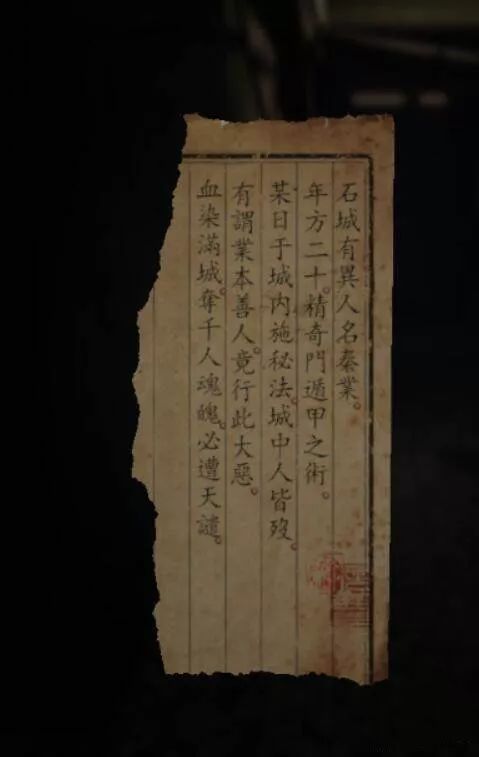 石城有異人名秦業。
年方二十。精奇門遁甲之術。
某日于城內施秘法。城中人皆歿。
有謂業本善人。竟行此大惡。
血染滿城。奪千人魂魄。必遭天譴。